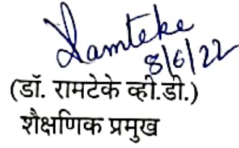 Ramteke
8/6/22
(डॉ. रामटेके व्ही.डी.)
शैक्षणिक प्रमुख